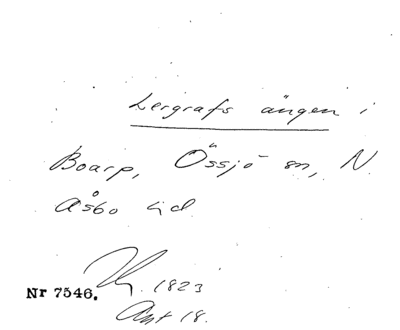 Lergrafs ängen i
Boarp, Össjö sn, N.
Åsbo hd.
1823
Nr 7546.
Ant 18.